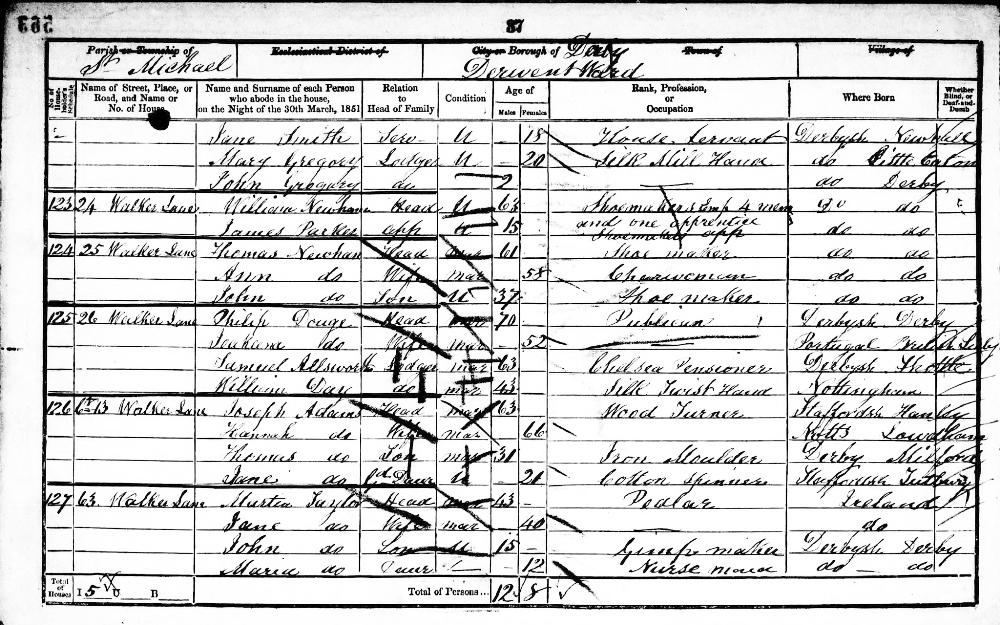 87
Parish or Township of Ecclesiastical District of City or Borough of Derby Town of Village of
St Michael Derwent Ward
No. of House-holder's Schedule Name of Street, Place, or Road, and Name or No. of House Name and Surname of each Person who abode in the house, on the Night of the 30th March, 1851 Relation to Head of Family Condition Age of Males Females Rank, Profession, or Occupation Where Born Whether Blind, or Deaf-and-Dumb
Jane Smith Serv U 18 House Servant Derbysh
Mary Gregory Lodger U 20 Silk Mill Hand do Little Eaton
John Gregory do — 2 do Derby
123 24 Walker Lane William Newham Head U 63 Shoemaker Emp 4 men do do
and one apprentice
James Parker app U 15 Shoemaker app do do
124 25 Walker Lane Thomas Newham Head mar 61 Shoe maker do do
Ann do Wife mar 58 Charwoman do do
John do Son U 37 Shoe maker do do
125 26 Walker Lane Philip Douge Head mar 70 Publican Derbysh Derby
do Wife mar 52 Portugal British
Samuel Allsworth Lodger mar 63 Chelsea Pensioner Derbysh
William Day do mar 43 Silk Twist Hand Nottingham
126 Walker Lane Joseph Adams Head mar 63 Wood Turner Staffordsh Hanley
Hannah do Wife mar 66 Notts Lowdham
Thomas do Son mar 31 Iron Moulder Derby Milford
Jane do Daur U 21 Cotton Spinner Staffordsh Tutbury
127 63 Walker Lane Martin Taylor Head mar 43 Pedlar Ireland
Jane do Wife mar 40 do
John do Son U 15 Gimp maker Derbysh Derby
Maria do Daur — 12 Nurse maid do — do
Total of Houses I 5 U B Total of Persons... 12 8